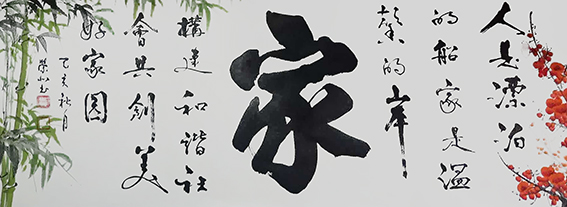 人是漂泊
的船家是温
馨的岸
家
構建和諧社
會共創美
好家園
己亥秋月